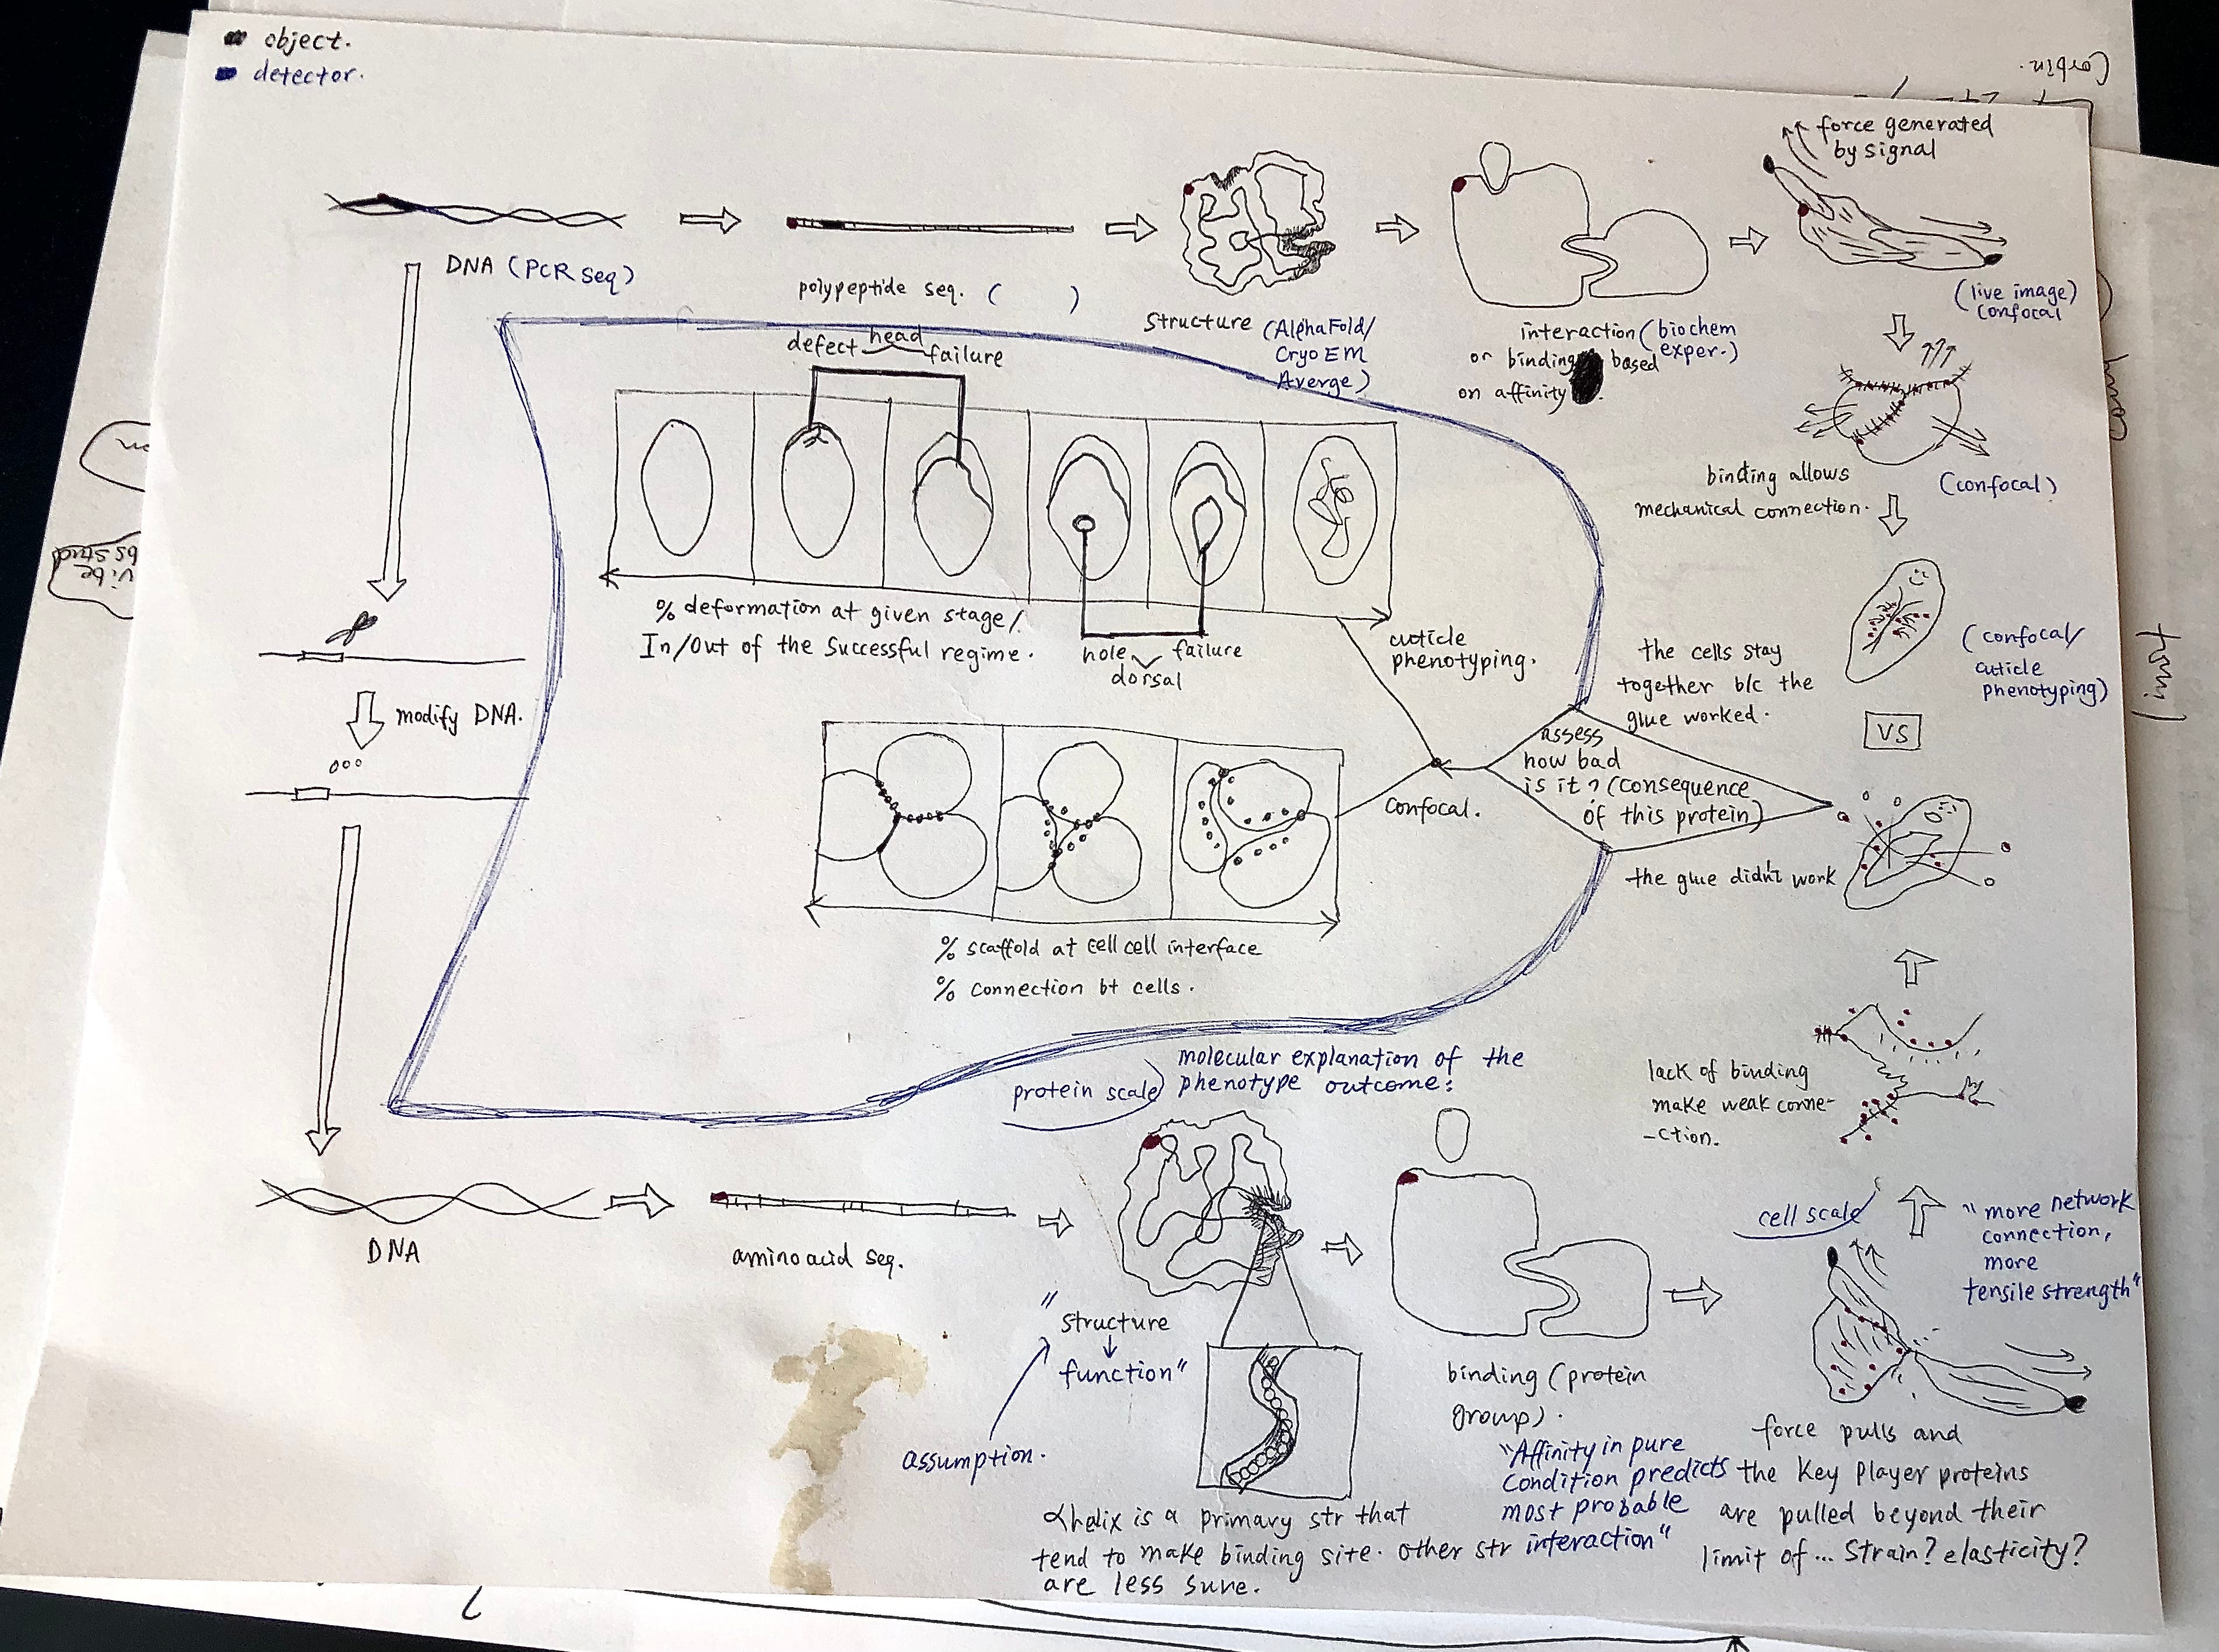 object.
detector.
Corbin.
force generated
by signal
DNA (PCR seq)
polypeptide seq. ( )
structure (AlphaFold/
Cryo EM
Averge)
interaction (biochem
exper.)
or binding based
on affinity
(live image)
confocal
binding allows
mechanical connection.
(confocal)
head
defect failure
% deformation at given stage/.
In/Out of the Successful regime.
hole failure
dorsal
cuticle
phenotyping.
the cells stay
together b/c the
glue worked.
(confocal/
cuticle
phenotyping)
VS
modify DNA.
assess
how bad
is it? (consequence
of this protein)
confocal.
the glue didn't work
% scaffold at cell cell interface
% connection bt cells.
lack of binding
make weak conne-
-ction.
protein scale
molecular explanation of the
phenotype outcome:
cell scale
"more network
connection,
more
tensile strength"
DNA
amino acid seq.
"structure
↓
function"
assumption.
αhelix is a primary str that
tend to make binding site. other str
are less sure.
binding (protein
group).
"Affinity in pure
condition predicts
most probable
interaction"
force pulls and
the Key Player proteins
are pulled beyond their
limit of... strain? elasticity?